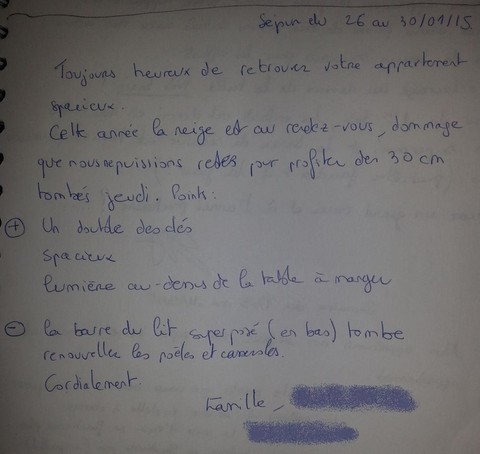 Sejour du 26 au 30/01/15
Toujours heureux de retrouver votre appartement
spacieux.
Cette année la neige est au rendez-vous, dommage
que nous ne puissions rester pour profiter des 30 cm
tombés jeudi. Points :
+ Un double des clés
Spacieux
lumière au-dessus de la table à manger
- la barre du lit superposé (en bas) tombe
renouveller les poëles et casseroles.
Cordialement.
Famille